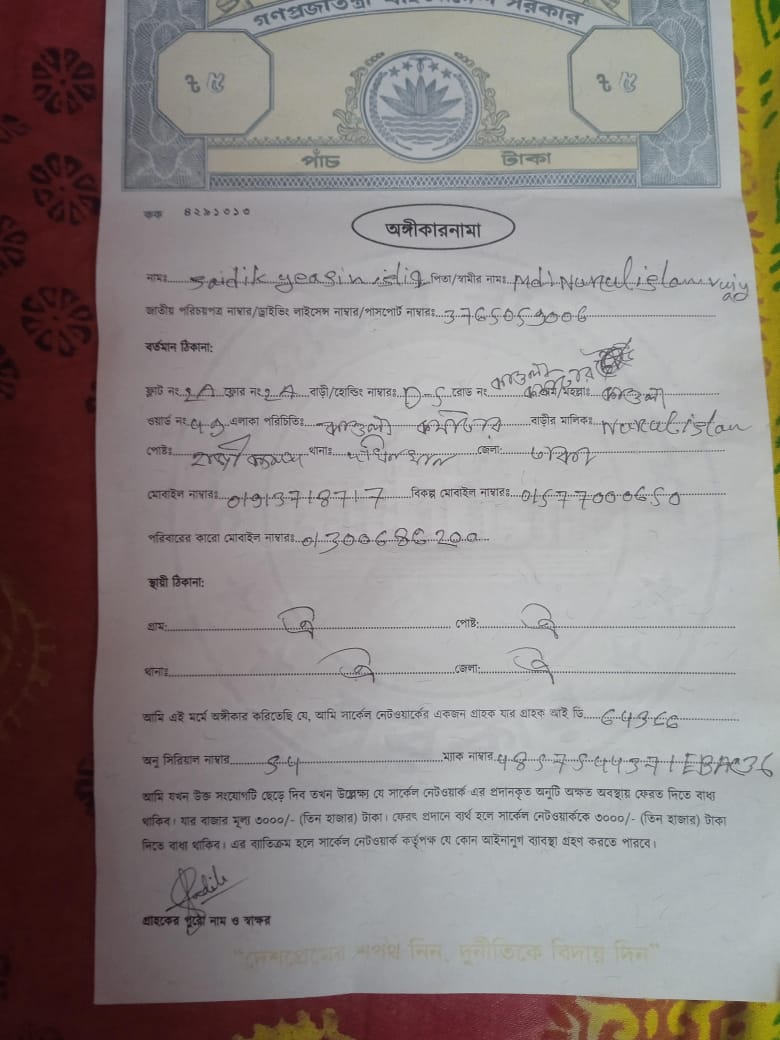 গণপ্রজাতন্ত্রী বাংলাদেশ সরকার
৳ ৫ ৳ ৫
পাঁচ টাকা
কক ৪২৯১০১০
অঙ্গীকারনামা
নামঃ saidik yeasin পিতা/স্বামীর নামঃ Md. Nurul islam
জাতীয় পরিচয়পত্র নাম্বার/ড্রাইভিং লাইসেন্স নাম্বার/পাসপোর্ট নাম্বারঃ 3765059006
বর্তমান ঠিকানা:
ফ্লাট নং 2A ফ্লোর নং 2A বাড়ী/হোল্ডিং নাম্বারঃ D-5 রোড নং কাওলা গ্রাম/মহল্লাঃ কাওলা
ওয়ার্ড নং ৪৯ এলাকা পরিচিতিঃ কাওলা বাড়ীর মালিকঃ Nurul islam
পোষ্টঃ থানাঃ দক্ষিনখান জেলা: ঢাকা
মোবাইল নাম্বারঃ 01913718717 বিকল্প মোবাইল নাম্বারঃ 01577000650
পরিবারের কারো মোবাইল নাম্বারঃ 01300686200
স্থায়ী ঠিকানা:
গ্রাম: ঐ পোষ্ট: ঐ
থানাঃ ঐ জেলা: ঐ
আমি এই মর্মে অঙ্গীকার করিতেছি যে, আমি সার্কেল নেটওয়ার্কের একজন গ্রাহক যার গ্রাহক আই ডি
অনু সিরিয়াল নাম্বার ম্যাক নাম্বার
আমি যখন উক্ত সংযোগটি ছেড়ে দিব তখন উল্লেক্ষ্য যে সার্কেল নেটওয়ার্ক এর প্রদানকৃত অনুটি অক্ষত অবস্থায় ফেরত দিতে বাধ্য
থাকিব। যার বাজার মূল্য ৩০০০/- (তিন হাজার) টাকা। ফেরৎ প্রদানে ব্যর্থ হলে সার্কেল নেটওয়ার্ককে ৩০০০/- (তিন হাজার) টাকা
দিতে বাধ্য থাকিব। এর ব্যতিক্রম হলে সার্কেল নেটওয়ার্ক কর্তৃপক্ষ যে কোন আইনানুগ ব্যাবস্থা গ্রহণ করতে পারবে।
Sadik
গ্রাহকের পুরো নাম ও স্বাক্ষর
"দেশপ্রেমের শপথ নিন, দুর্নীতিকে বিদায় দিন"